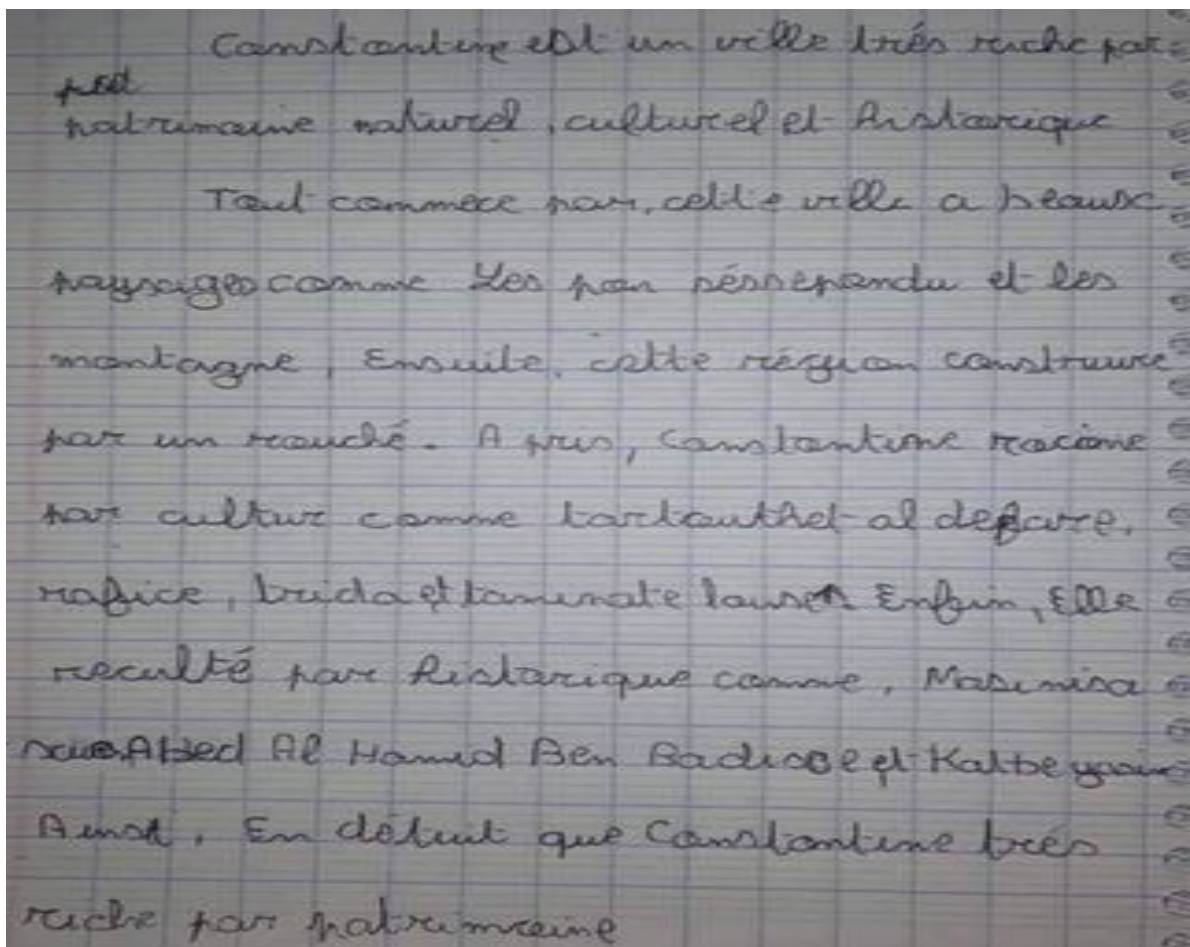 Constantine est un ville trés riche par
patrimoine naturel, culturel et historique
Tout commece par, cette ville a beaux
paysages comme les pon sésserpandu et les
montagne, Ensuite, cette région construire
par un rouché. A pris, Constantine racine
par cultur comme
rafice, brida et taminate Enfin, Elle
reculté par historique comme, Masinisa
Abed Al Hamid Ben Badisse et Katbe yasin
Ainst. En détuit que Constantine trés
riche par patrimoine